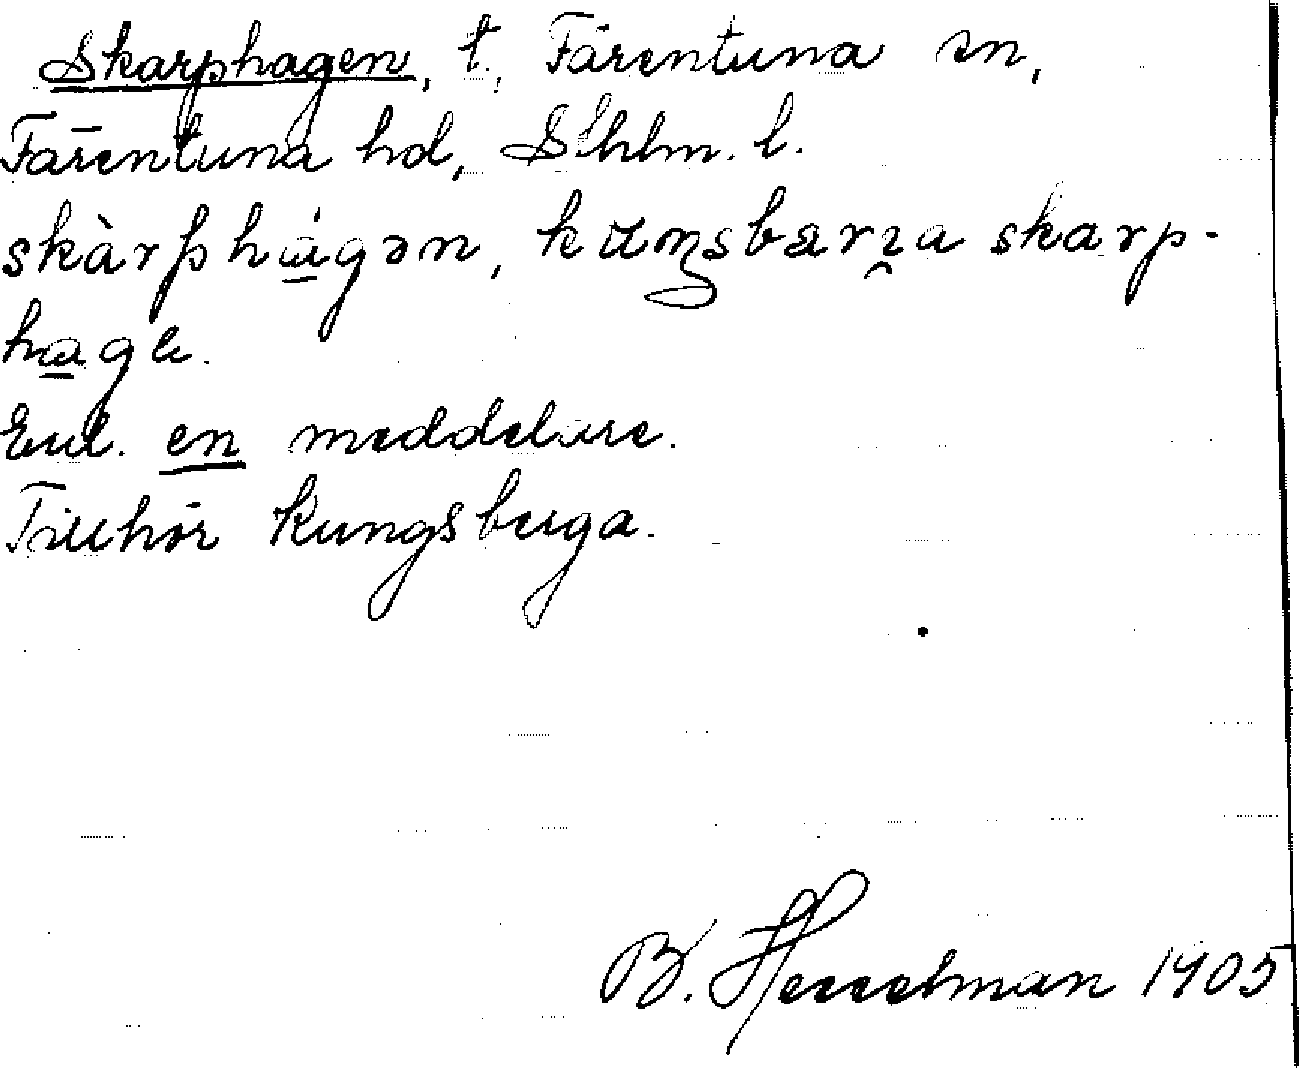 Skarphagen, t., Färentuna sn,
Färentuna hd, Sthlm. l.
skàrphágən, kuŋsbærɡa skarp-
hage.
Enl. en meddelare.
Tillhör Kungsberga.
B. Hesselman 1905